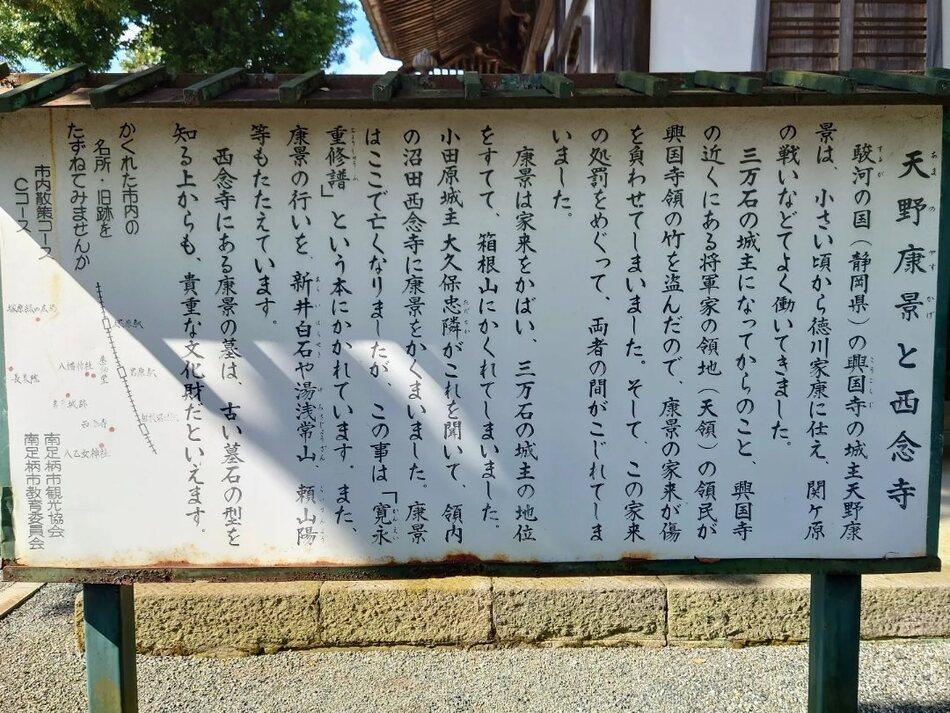 天野康景と西念寺
あまのやすかげ
駿河の国（静岡県）の興国寺の城主天野康
するが
こうこくじ
景は、小さい頃から徳川家康に仕え、関ケ原
の戦いなどでよく働いてきました。
三万石の城主になってからのこと、興国寺
の近くにある将軍家の領地（天領）の領民が
興国寺領の竹を盗んだので、康景の家来が傷
を負わせてしまいました。そして、この家来
の処罰をめぐって、両者の間がこじれてしま
いました。
康景は家来をかばい、三万石の城主の地位
をすてて、箱根山にかくれてしまいました。
小田原城主大久保忠隣がこれを聞いて、領内
ただちか
の沼田西念寺に康景をかくまいました。康景
はここで亡くなりましたが、この事は「寛永
かんえい
重修譜」という本にかかれています。また、
康景の行いを、新井白石や湯浅常山、頼山陽
等もたたえています。
西念寺にある康景の墓は、古い墓石の型を
知る上からも、貴重な文化財だといえます。
かくれた市内の
名所・旧跡を
たずねてみませんか
市内散策コース
Cコース
塚原駅
岩原駅
八幡神社
長泉院
西念寺
八乙女神社
南足柄市観光協会
南足柄市教育委員会